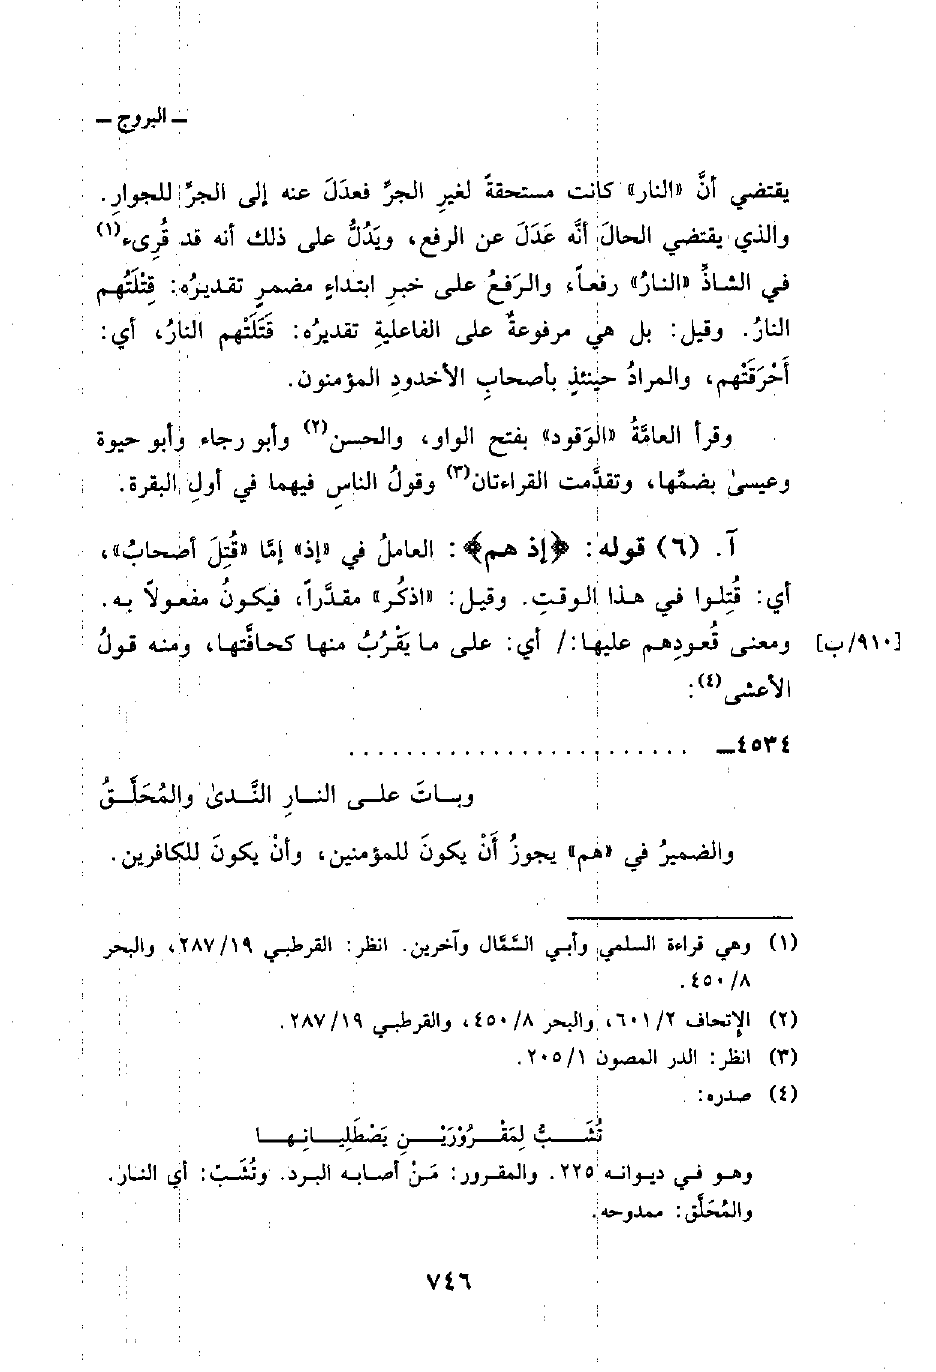 ـ البروج ـ
يقتضي أنَّ «النار» كانت مستحقةً لغيرِ الجرِّ فعدَلَ عنه إلى الجرِّ للجوارِ.
والذي يقتضي الحالَ أنَّه عَدَلَ عن الرفع، ويَدُلُّ على ذلك أنه قد قُرِىء(١)
في الشاذِّ «النارُ» رفعاً، والرَفعُ على خبرِ ابتداءٍ مضمرٍ تقديرُه: قِتْلَتُهم
النارُ. وقيل: بل هي مرفوعةٌ على الفاعليةِ تقديرُه: قَتَلَتْهم النارُ، أي:
أَحْرَقَتْهم، والمرادُ حينئذٍ بأصحابِ الأخدودِ المؤمنون.
وقرأ العامَّةُ «الوَقود» بفتح الواو، والحسن(٢) وأبو رجاء وأبو حيوة
وعيسىٰ بضمِّها، وتقدَّمت القراءتان(٣) وقولُ الناسِ فيهما في أولِ البقرة.
آ. (٦) قوله: ﴿إذ هم﴾: العاملُ في «إذ» إمَّا «قُتِلَ أصحابُ»،
أي: قُتِلوا في هذا الوقتِ. وقيل: «اذكُر» مقدَّراً، فيكونُ مفعولاً به.
[٩١٠/ب] ومعنى قُعودِهم عليها:/ أي: على ما يَقْرُبُ منها كحافَّتها، ومنه قولُ
الأعشى(٤):
٤٥٣٤ـ . . . . . . . . . . . . . . . . . . . . . . . .
وبـاتَ على النـارِ النَّـدىٰ والمُحَلَّـقُ
والضميرُ في «هم» يجوزُ أَنْ يكونَ للمؤمنين، وأنْ يكونَ للكافرين.
(١) وهي قراءة السلمي وأبي السَّمَّال وآخرين. انظر: القرطبي ٢٨٧/١٩، والبحر
٤٥٠/٨.
(٢) الإتحاف ٦٠١/٢، والبحر ٤٥٠/٨، والقرطبي ٢٨٧/١٩.
(٣) انظر: الدر المصون ٢٠٥/١.
(٤) صدره:
تُشَـبُّ لِمَقْـرُوْرَيْـنِ يَصْطَلِيـانِـهـا
وهو في ديوانه ٢٢٥. والمقرور: مَنْ أصابه البرد. وتُشَبّ: أي النار.
والمُحَلَّق: ممدوحه.
٧٤٦